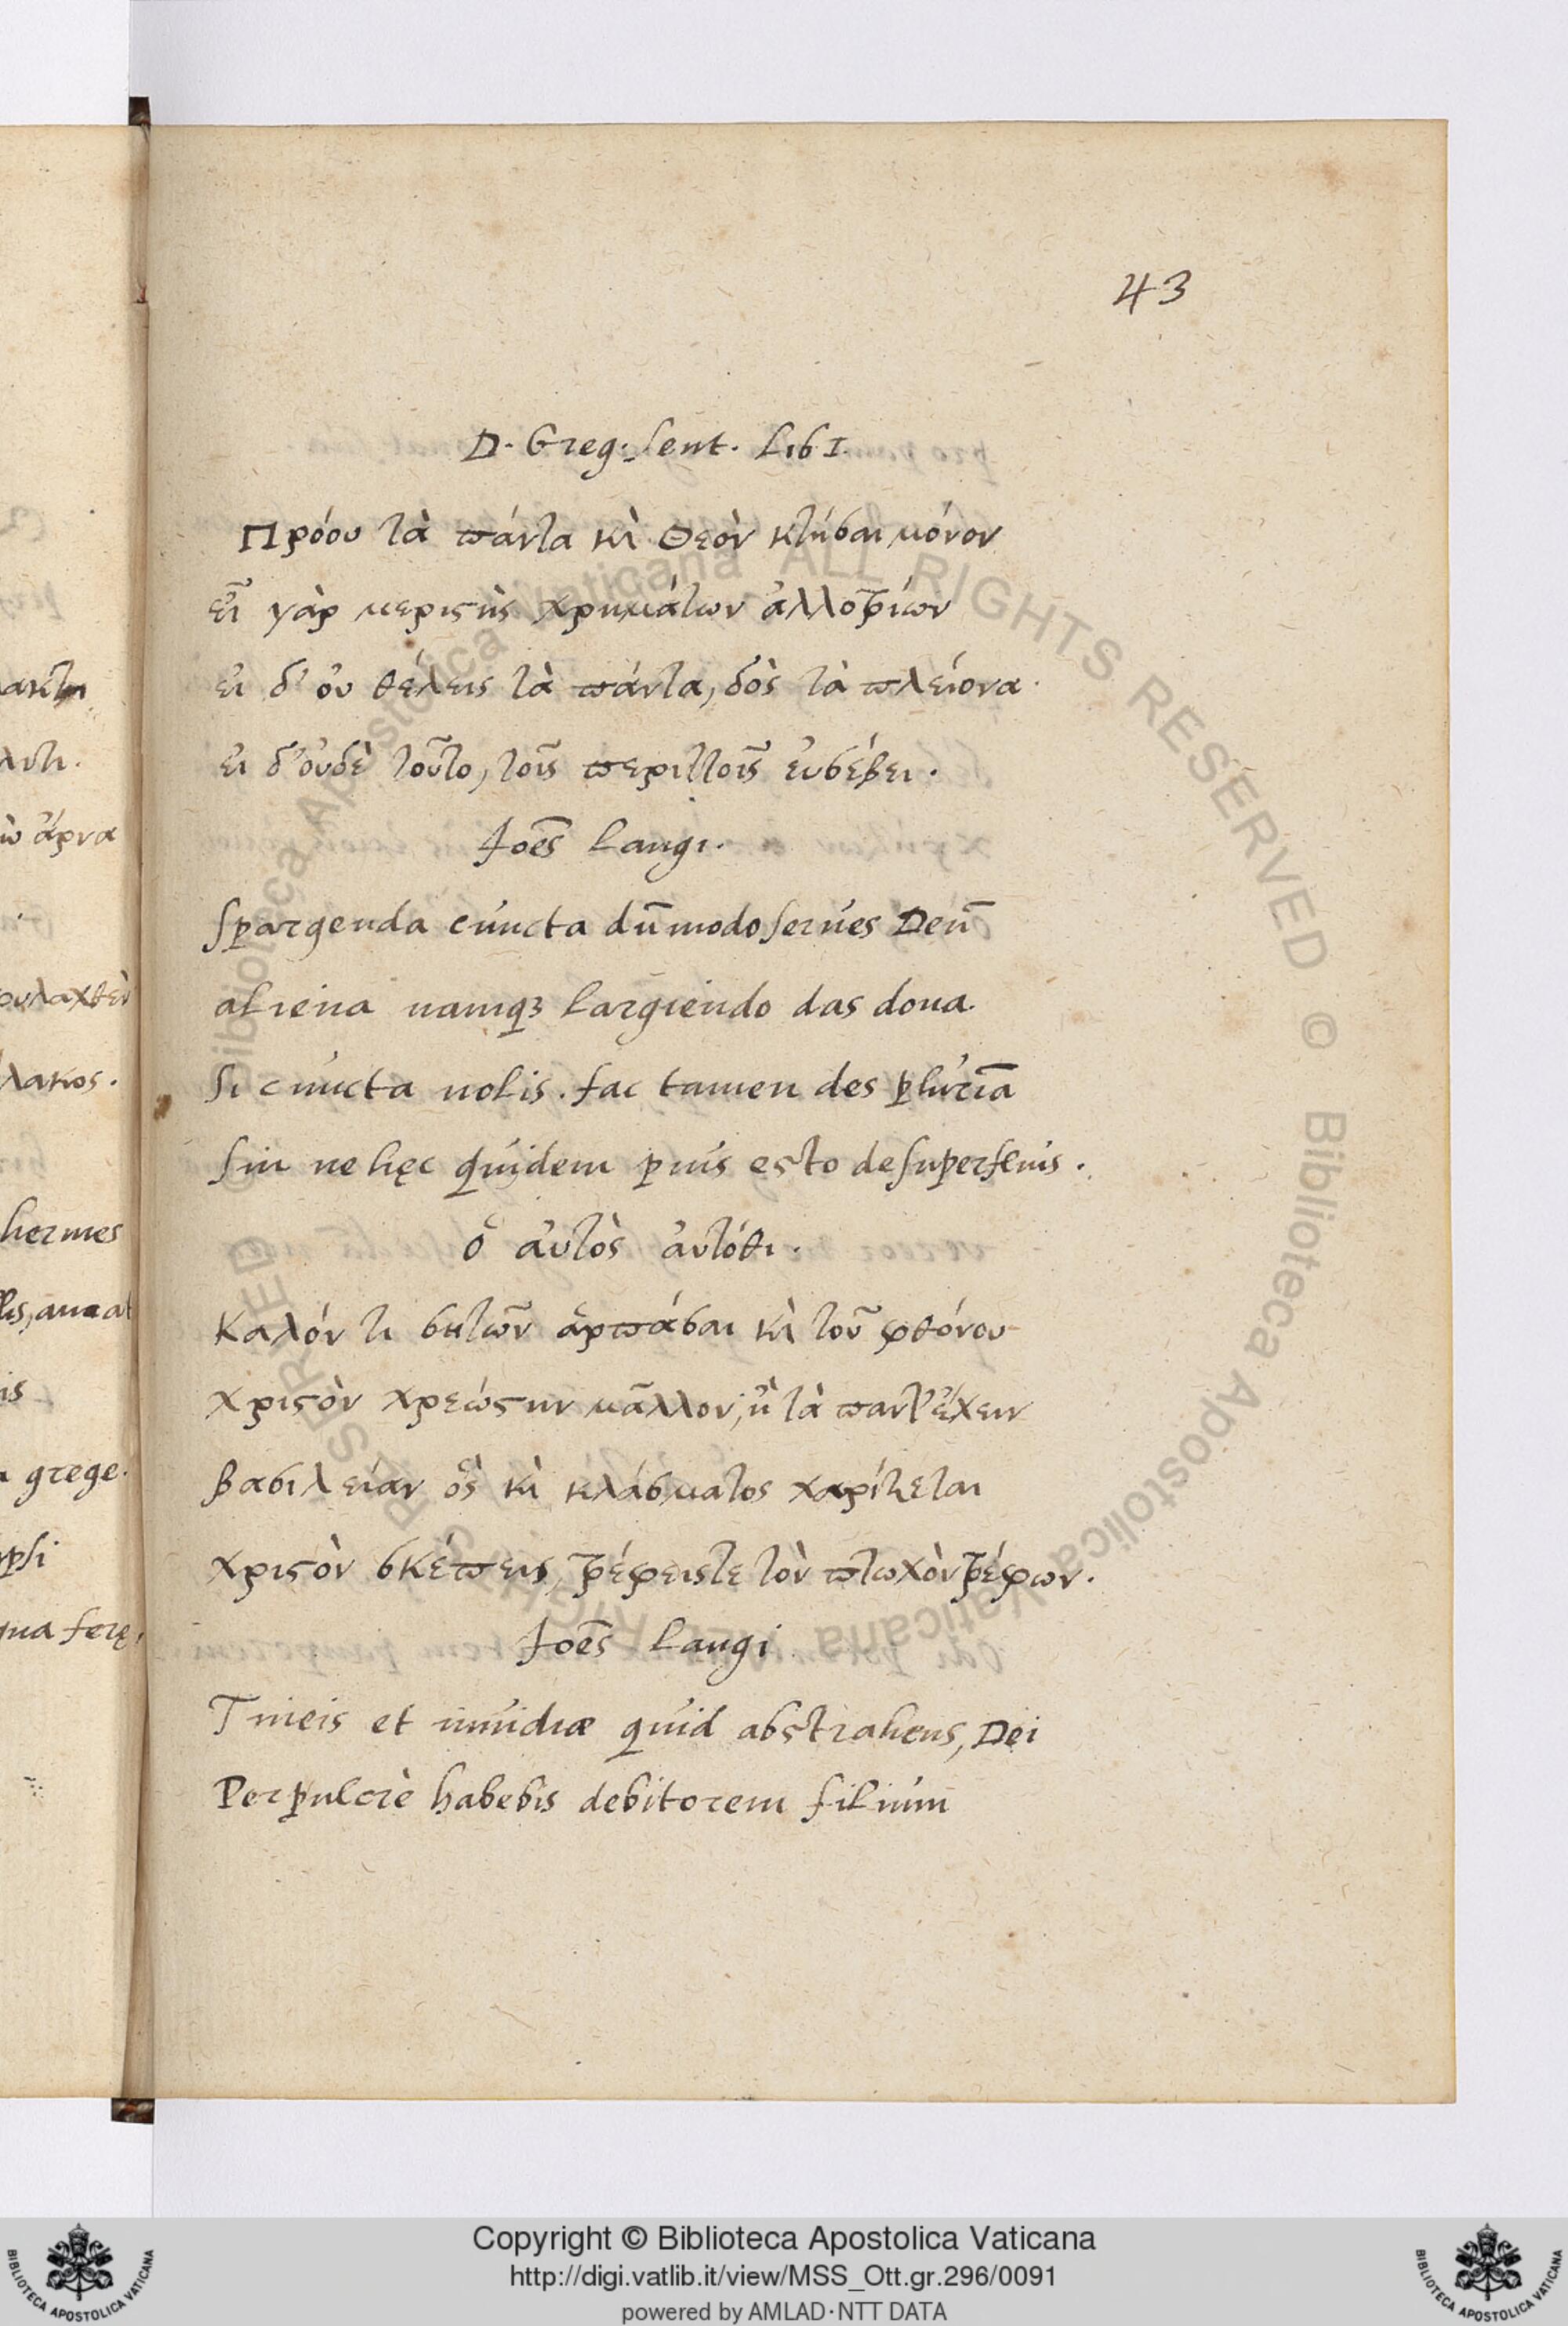 43
D. Greg. sent. Lib I.
Πρόου τὰ πάντα κὶ Θεὸν κτῆσαι μόνον
εἶ γὰρ μεριστὴς χρημάτων ἀλλοτρίων
εἰ δ' οὐ θέλεις τὰ πάντα, δὸς τὰ πλείονα.
εἰ δ' οὐδὲ τοῦτο, τοῖς περιττοῖς εὐσέβει.
Joēs Langi.
Spargenda cuncta dūmodo serues Deū
aliena namq3 largiendo das dona.
Si cuncta nolis. fac tamen des plurīa
Sin ne hęc quidem pius esto de superfluis.
ὁ αὐτὸς αὐτόθι.
Καλόν τι σητῶν ἁρπάσαι κὶ τοῦ φθόνου
χριστὸν χρεώστην μᾶλλον, ἢ τὰ παντ' ἔχειν
βασιλείαν ὃς κὶ κλάσματος χαρίζεται
χριστὸν σκέπεις, τρέφεις τε τὸν πτωχὸν τρέφων.
Joēs Langi
Tineis et inuidiæ quid abstrahens, Dei
Perpulcrè habebis debitorem filium
ἄρνα
λακος.
hermes
is
grege.
Copyright © Biblioteca Apostolica Vaticana
http://digi.vatlib.it/view/MSS_Ott.gr.296/0091
powered by AMLAD·NTT DATA
BIBLIOTECA APOSTOLICA VATICANA
BIBLIOTECA APOSTOLICA VATICANA
© Biblioteca Apostolica Vaticana ALL RIGHTS RESERVED © Biblioteca Apostolica Vaticana ALL RIGHTS RESERVED